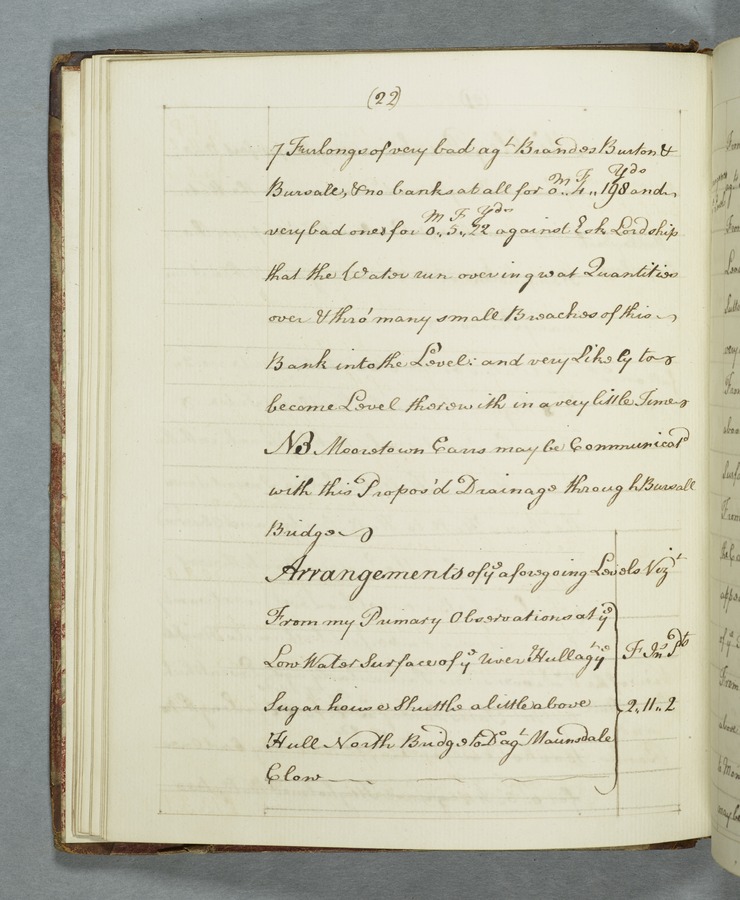 (22)
7 Furlongs of very bad agt. Brandes Burton &
Bursall, & no banks at all for 0M.. 4F.. 198Yds and
very bad ones for 0M.. 5F.. 22Yds against Esk Lordship
that the Water run over in great Quantities
over & thro' many small Breaches of this
Bank into the Level: and very Likely to
become Level therewith in a very little Time
NB Mooretown Carrs may be Communicatd
with this Propos'd Drainage through Bursall
Bridge
Arrangements of ye aforegoing Levels Vizt
From my Primary Observations at ye
Low Water Surface of ye River Hull agt ye
Sugar house Shuttle a little above
Hull North Bridge to Do agt Maunsdale
Clow
F.. Ins.. Pts
2.. 11.. 2